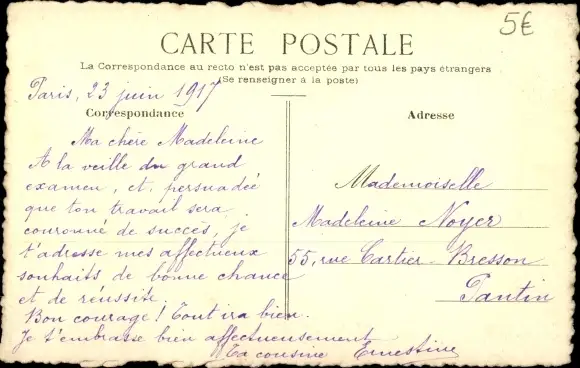 5€
CARTE POSTALE
La Correspondance au recto n'est pas acceptée par tous les pays étrangers
(Se renseigner à la poste)
Paris, 23 juin 1917
Correspondance
Ma chère Madeleine
A la veille du grand
examen, et, persuadée
que ton travail sera
couronné de succès, je
t'adresse mes affectueux
souhaits de bonne chance
et de réussite.
Bon courage! Tout ira bien.
Je t'embrasse bien affectueusement
Ta cousine Ernestine
Adresse
Mademoiselle
Madeleine Noyer
55, rue Cartier-Bresson
Pantin